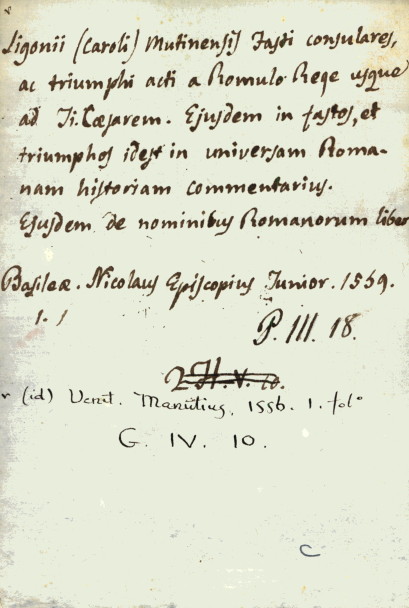 Ligonii (Caroli) Mutinensis Fasti consulares,
ac triumphi acti a Romulo Rege usque
ad Ti. Cæsarem. Ejusdem in fastos, et
triumphos idest in universam Roma-
nam historiam commentarius.
Ejusdem de nominibus Romanorum liber
Basileæ. Nicolaus Episcopius Junior. 1559.
1. 1
P. III. 18.
2 H. V. 10.
(id) Venet. Manutius, 1556. 1. folº
G. IV. 10.
C